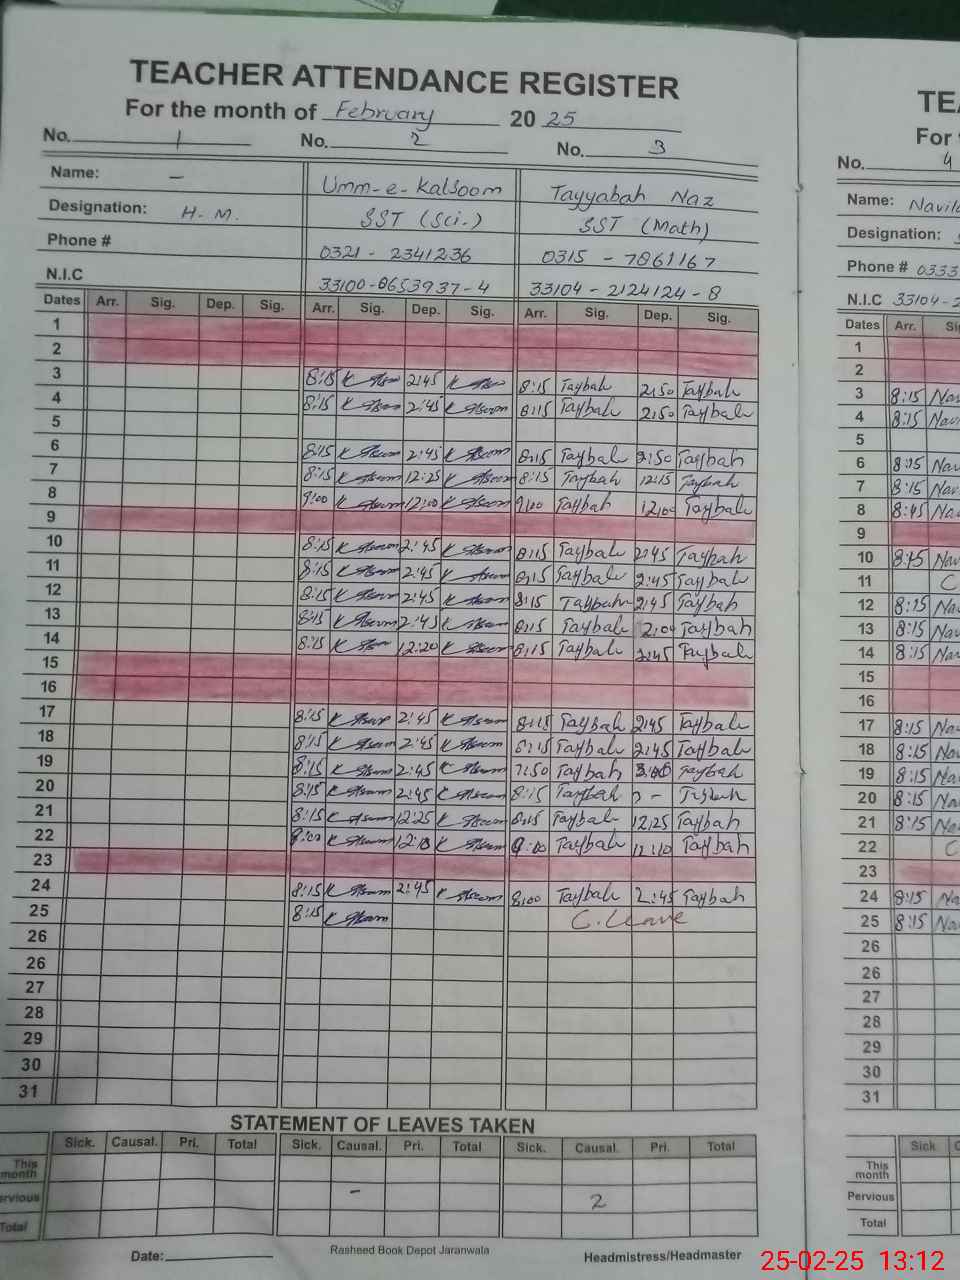 TEACHER ATTENDANCE REGISTER
For the month of February 20 25
No. 1 No. 2 No. 3
Name: – Umm-e-Kalsoom Tayyabah Naz
Designation: H.M. SST (Sci.) SST (Math)
Phone # 0321 - 2341236 0315 - 7861167
N.I.C 33100-0653937-4 33104-2124124-8
Dates Arr. Sig. Dep. Sig. Arr. Sig. Dep. Sig. Arr. Sig. Dep. Sig.
1
2
3 8:15 2:45 8:15 Taybah 2:50 Taybah
4 8:15 2:45 8:15 Taybah 2:50 Taybah
5
6 8:15 2:45 8:15 Taybah 2:50 Taybah
7 8:15 12:25 8:15 Taybah 12:15 Taybah
8 9:00 12:00 9:00 Taybah 12:00 Taybah
9
10 8:15 2:45 8:15 Taybah 2:45 Taybah
11 8:15 2:45 8:15 Taybah 2:45 Taybah
12 8:15 2:45 8:15 Taybah 2:45 Taybah
13 8:15 2:45 8:15 Taybah 2:00 Taybah
14 8:15 12:20 8:15 Taybah 2:45 Taybah
15
16
17 8:15 2:45 8:15 Taybah 2:45 Taybah
18 8:15 2:45 8:15 Taybah 2:45 Taybah
19 8:15 2:45 7:50 Taybah Taybah
20 8:15 2:45 8:15 Taybah Taybah
21 8:15 12:25 8:15 Taybah 12:25 Taybah
22 9:00 12:10 9:00 Taybah 12:10 Taybah
23
24 8:15 2:45 8:00 Taybah 2:45 Taybah
25 8:15 C. Leave
26
26
27
28
29
30
31
STATEMENT OF LEAVES TAKEN
Sick. Causal. Pri. Total Sick. Causal. Pri. Total Sick. Causal. Pri. Total
This month
Pervious – 2
Total
Date: Rasheed Book Depot Jaranwala Headmistress/Headmaster
TEA
For
No. 4
Name: Navila
Designation: S
Phone # 0333
N.I.C 33104-2
Dates Arr. Sig
1
2
3 8:15 Nav
4 8:15 Nav
5
6 8:15 Nav
7 8:15 Nav
8 8:45 Nav
9
10 8:15 Nav
11 C
12 8:15 Nav
13 8:15 Nav
14 8:15 Nav
15
16
17 8:15 Nav
18 8:15 Nav
19 8:15 Na
20 8:15 Na
21 8:15 Na
22 C
23
24 8:15 Na
25 8:15 Na
26
26
27
28
29
30
31
Sick C
This month
Pervious
Total
25-02-25 13:12